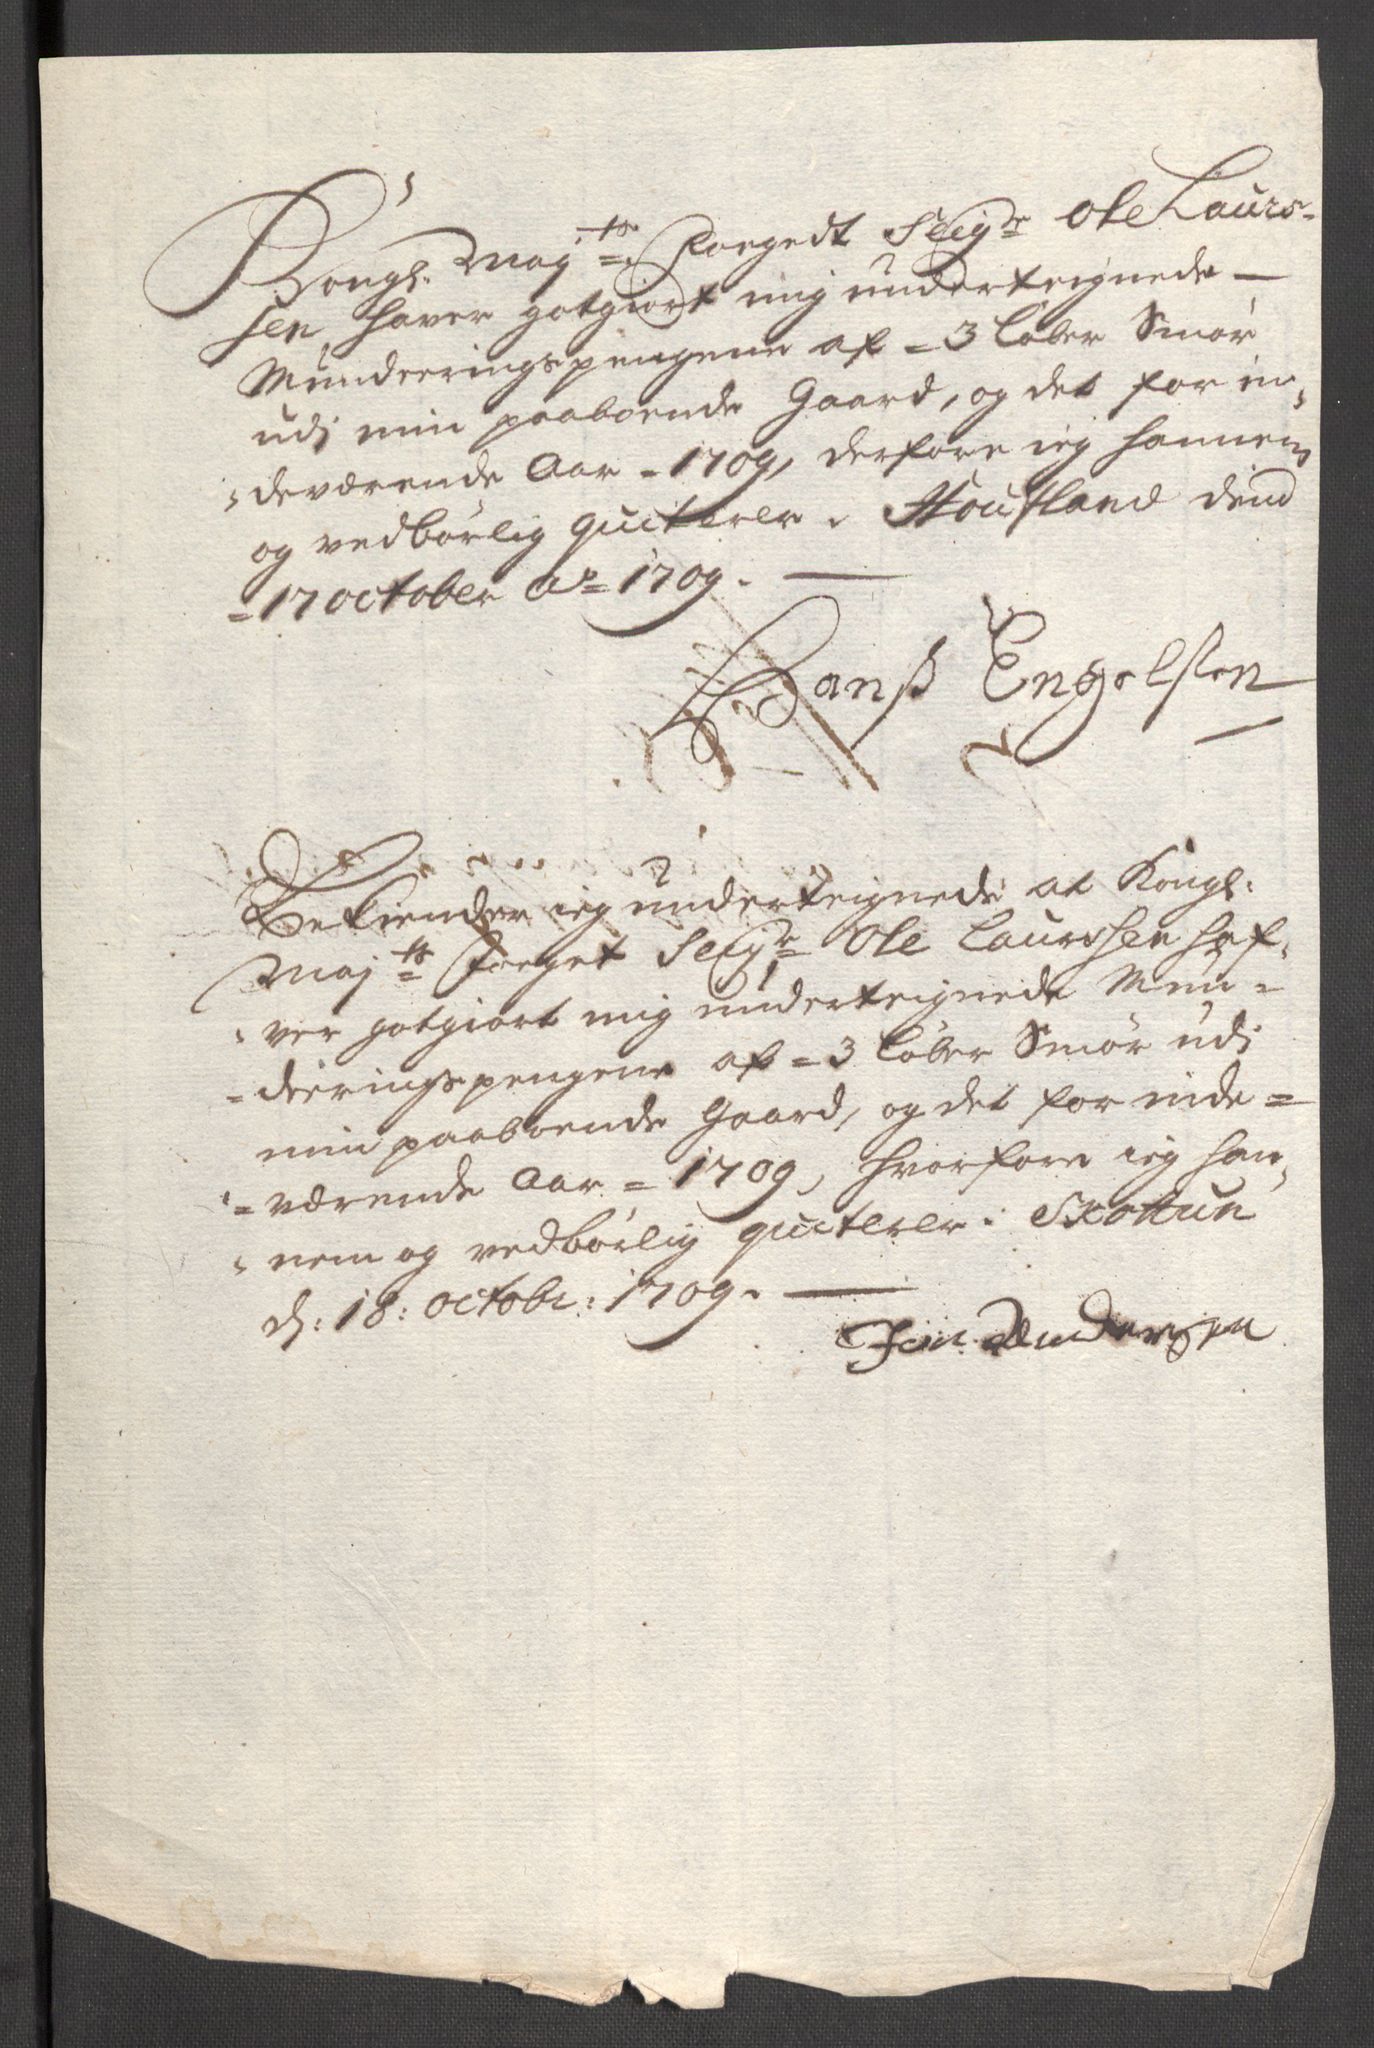 Kongl. Maj:ts Foegedt Seig:r Ole Laurs-
sen hafver gotgiort mig underteignede —
Munderingspengene af = 3 Løber Smør
udi min paaboende Gaard, og det for in-
deværende Aar = 1709, derfore ieg hannem
og vedbørlig quiterer. Houfland dend
= 17 october Ao = 1709. —
Hanß Engelsen
Bekiender ieg underteignede at Kongl:
Maj:ts Foeget Seig:r Ole Laurssen haf-
ver gotgiort mig underteignede Mun-
deringspengene af = 3 Løber Smør udi
min paaboende Gaard, og det for inde =
= værende Aar = 1709, hvorfore ieg han-
nem og vedbørlig quiterer. Skottun
d: 18: octobr: 1709. —
Jon Andersen